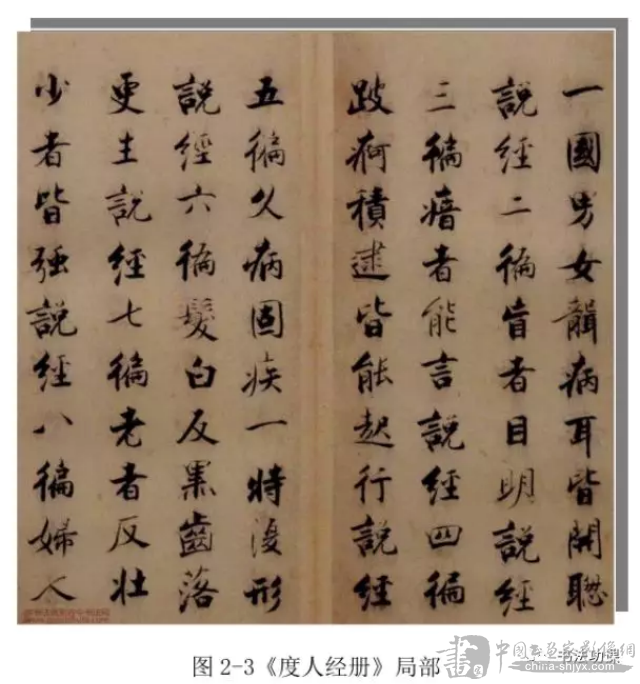 一國男女聾病耳皆開聰
說經二徧盲者目明說經
三徧瘖者能言說經四徧
跛痾積逮皆能起行說經
五徧久病固疾一時復形
說經六徧髮白反黑齒落
更生說經七徧老者反壯
少者皆强說經八徧婦人
图 2-3《度人经册》局部
书法功课
中国书画家影像网
china-shjyx.com